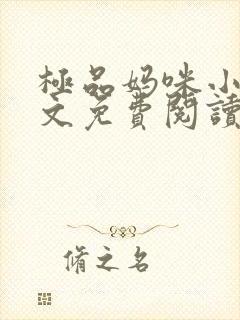 極品妈咪小
文免費閱讀
脩之名